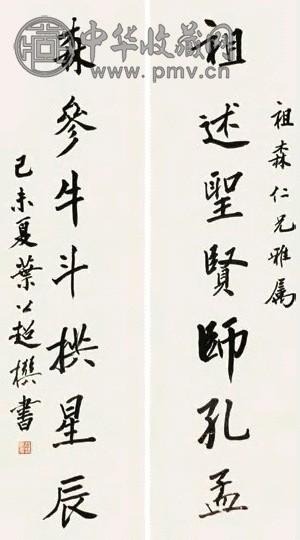 中华收藏网
www.pmv.cn
祖森仁兄雅属
祖述聖賢師孔孟
森參牛斗拱星辰
己未夏葉公超撰書